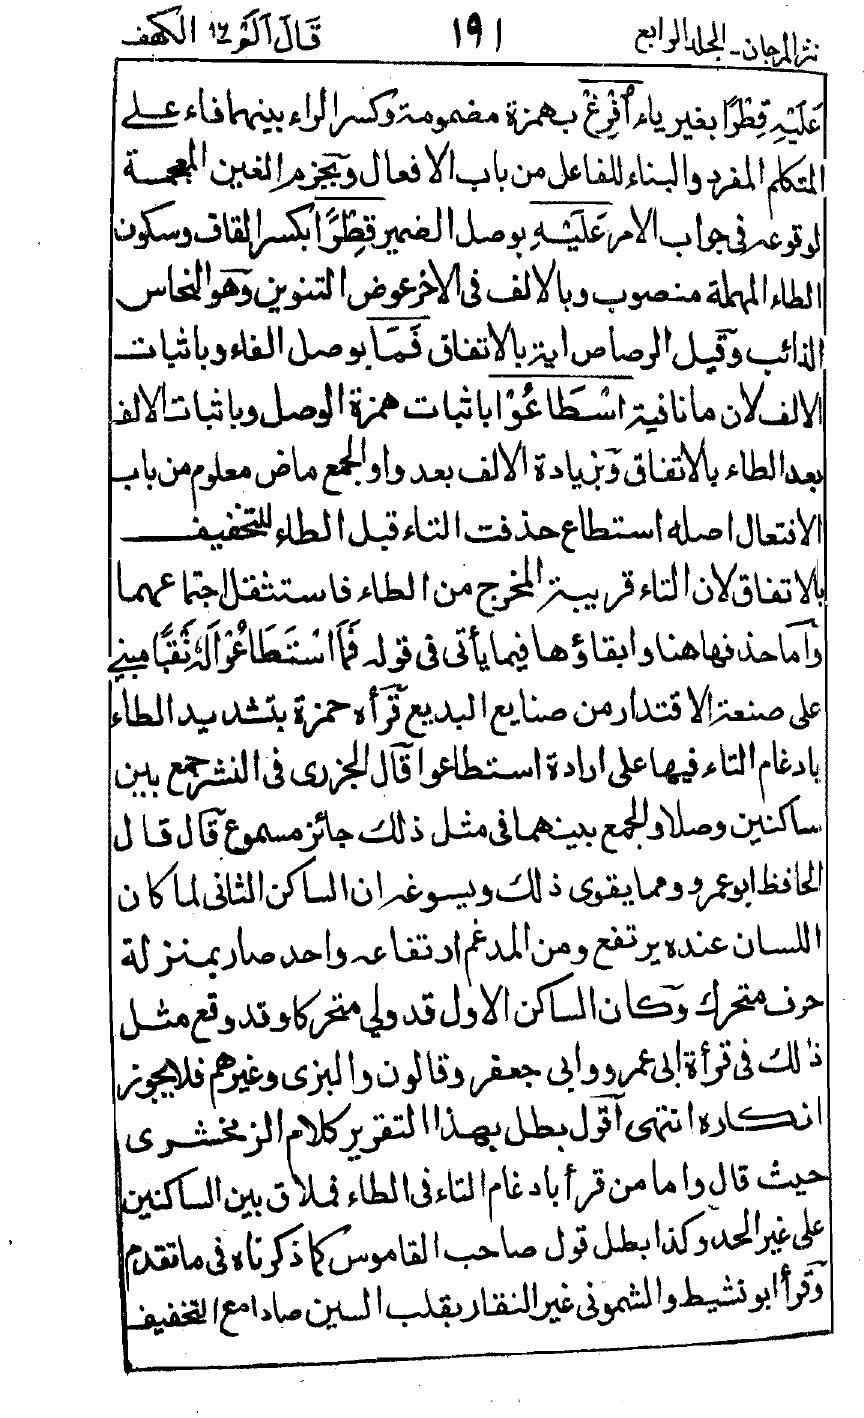 نثر المرجان - المجلد الرابع ١٩١ قَالَ اَلَمْ ١٦ الكهف
عَلَيْهِ قِطْرًا بغير ياء أُفْرِغْ بهمزة مضمومة وكسر الراء بينهما فاء على
المتكلم المفرد والبناء للفاعل من باب الافعال وبجزم الغين المعجمة
لوقوعه فى جواب الامر عَلَيْهِ بوصل الضمير قِطْرًا بكسر القاف وسكون
الطاء المهملة منصوب وبالالف فى الاخر عوض التنوين وهو النحاس
الذائب وقيل الرصاص اية بالاتفاق فَمَا بوصل الفاء وباثبات
الالف لان ما نافية اسْطَاعُوْا باثبات همزة الوصل وباثبات الالف
بعد الطاء بالاتفاق وبزيادة الالف بعد واو الجمع ماض معلوم من باب
الافتعال اصله استطاع حذفت التاء قبل الطاء للتخفيف
بالاتفاق لان التاء قريبة المخرج من الطاء فاستثقل اجتماعهما
وأما حذفها هنا وابقاؤها فيما يأتى فى قوله فَمَا اسْتَطَاعُوْا لَهٗ نَقْبًا مبنى
على صنعة الاقتدار من صنايع البديع قرأه حمزة بتشديد الطاء
بادغام التاء فيها على ارادة استطاعوا قال الجزرى فى النشر جمع بين
ساكنين وصلا والجمع بينهما فى مثل ذلك جائز مسموع قال قال
الحافظ ابو عمرو ومما يقوى ذلك ويسوغه ان الساكن الثانى لما كان
اللسان عنده يرتفع ومن المدغم ارتفاعه واحد صار بمنزلة
حرف متحرك وكان الساكن الاول قد ولي متحركا وقد وقع مثل
ذلك فى قرأة ابى عمرو وابى جعفر وقالون والبزى وغيرهم فلا يجوز
انكاره انتهى أقول بطل بهذا التقرير كلام الزمخشرى
حيث قال واما من قرأ بادغام التاء فى الطاء فملاق بين الساكنين
على غير الحد وكذا بطل قول صاحب القاموس كما ذكرناه فى ما تقدم
وقرأ ابو نشيط والشمونى غير النقار بقلب السين صادا مع التخفيف